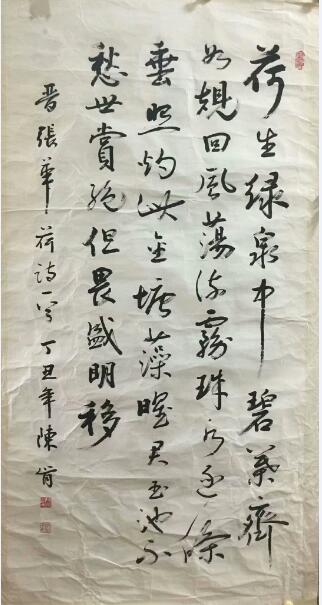 荷生绿泉中碧葉齊
如規回風蕩流霧珠水逐條
垂照灼此金塘藻曜君玉池不
愁世賞絕但畏盛明移
晋張華荷詩一首 丁丑年陳